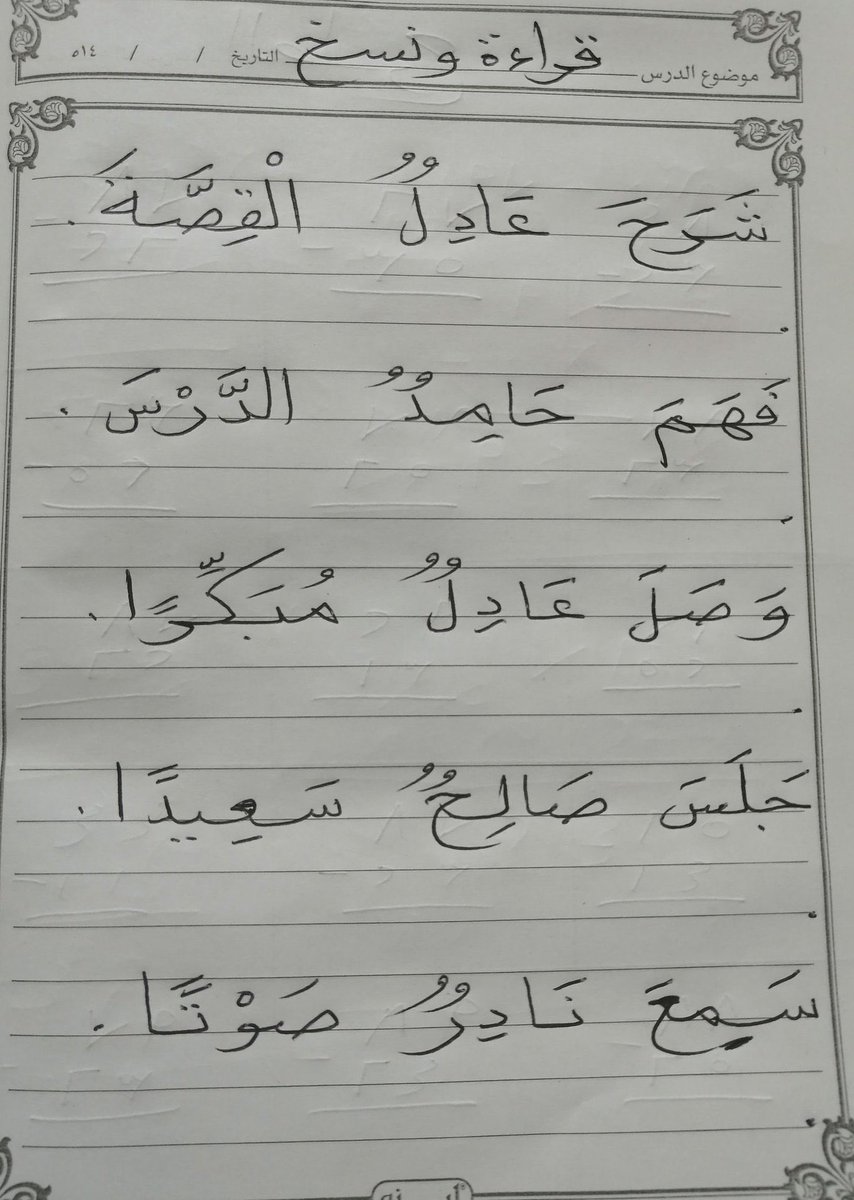 موضوع الدرس قراءة ونسخ التاريخ / / ١٤هـ
شَرَحَ عَادِلٌ الْقِصَّةَ.
فَهَمَ حَامِدٌ الدَّرْسَ.
وَصَلَ عَادِلٌ مُبَكِّرًا.
جَلَسَ صَالِحٌ سَعِيدًا.
سَمِعَ نَادِرٌ صَوْتًا.